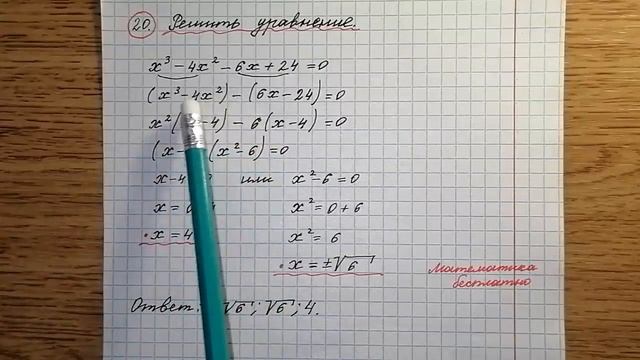 20. Решить уравнение.
x³ - 4x² - 6x + 24 = 0
(x³ - 4x²) - (6x - 24) = 0
x²( - 4) - 6(x - 4) = 0
(x - (x² - 6) = 0
x - 4 или x² - 6 = 0
x = x² = 0 + 6
x = 4 x² = 6
x = ±√6
Математика
бесплатно
Ответ: √6; √6; 4.